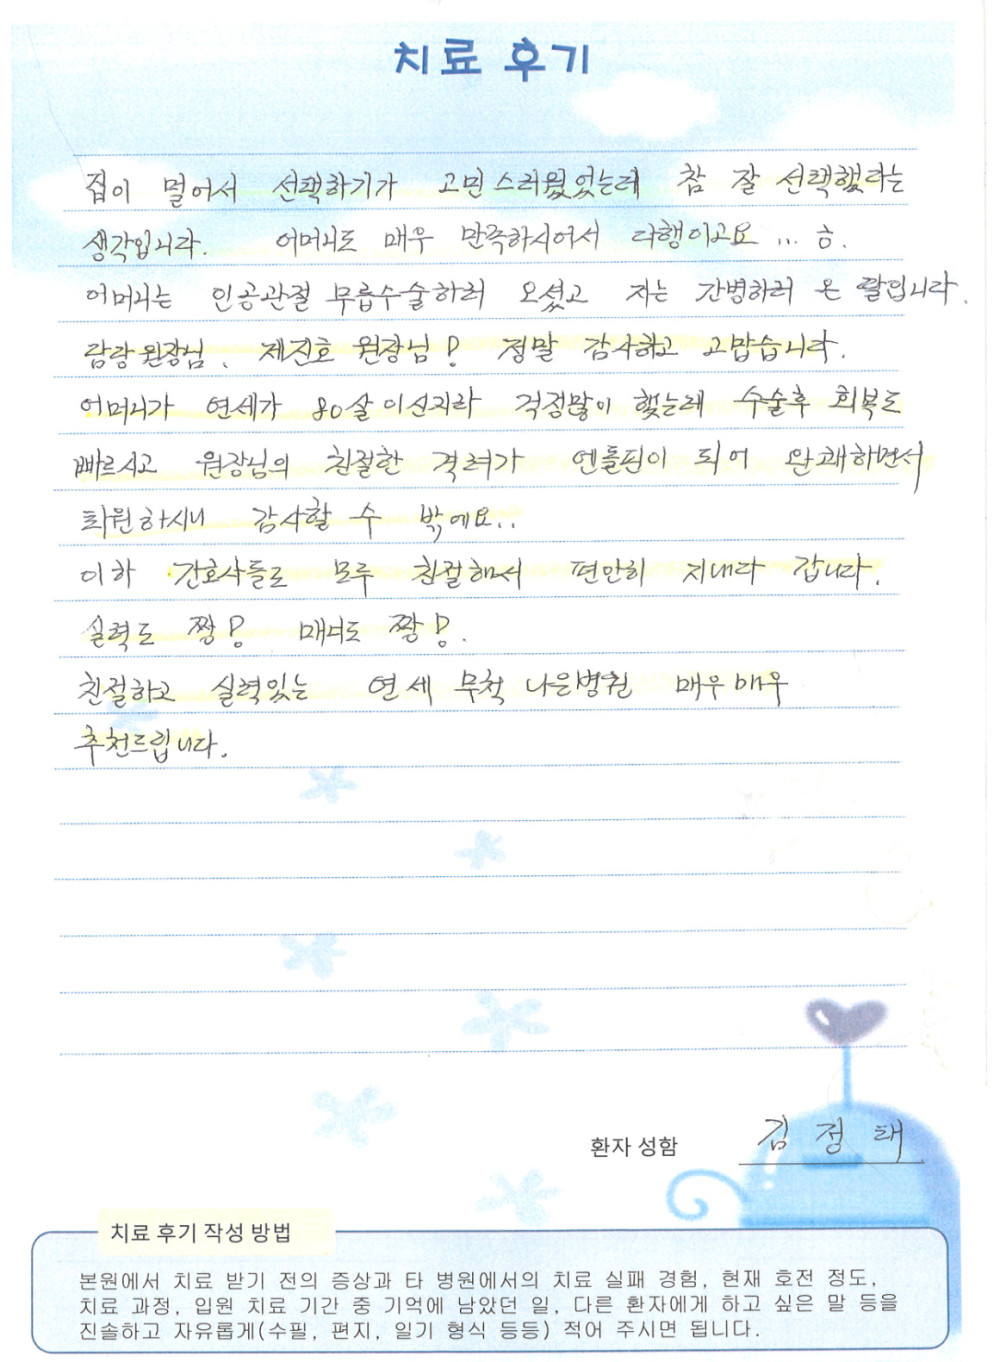 치료 후기
집이 멀어서 선택하기가 고민스러웠었는데 참 잘 선택했다는
생각입니다. 어머니도 매우 만족하시어서 다행이고요 ... ㅎ.
어머니는 인공관절 무릎수술하러 오셨고 저는 간병하러 온 딸입니다.
원장님, 제진호 원장님! 정말 감사하고 고맙습니다.
어머니가 연세가 80살이신지라 걱정많이 했는데 수술후 회복도
빠르시고 원장님의 친절한 격려가 엔돌핀이 되어 완쾌하면서
퇴원하시니 감사할 수 밖에요..
이하 간호사들도 모두 친절해서 편안히 지내다 갑니다.
실력도 짱! 매너도 짱!.
친절하고 실력있는 연세 무척 나은병원 매우매우
추천드립니다.
환자 성함 김정태
치료 후기 작성 방법
본원에서 치료 받기 전의 증상과 타 병원에서의 치료 실패 경험, 현재 호전 정도,
치료 과정, 입원 치료 기간 중 기억에 남았던 일, 다른 환자에게 하고 싶은 말 등을
진솔하고 자유롭게(수필, 편지, 일기 형식 등등) 적어 주시면 됩니다.